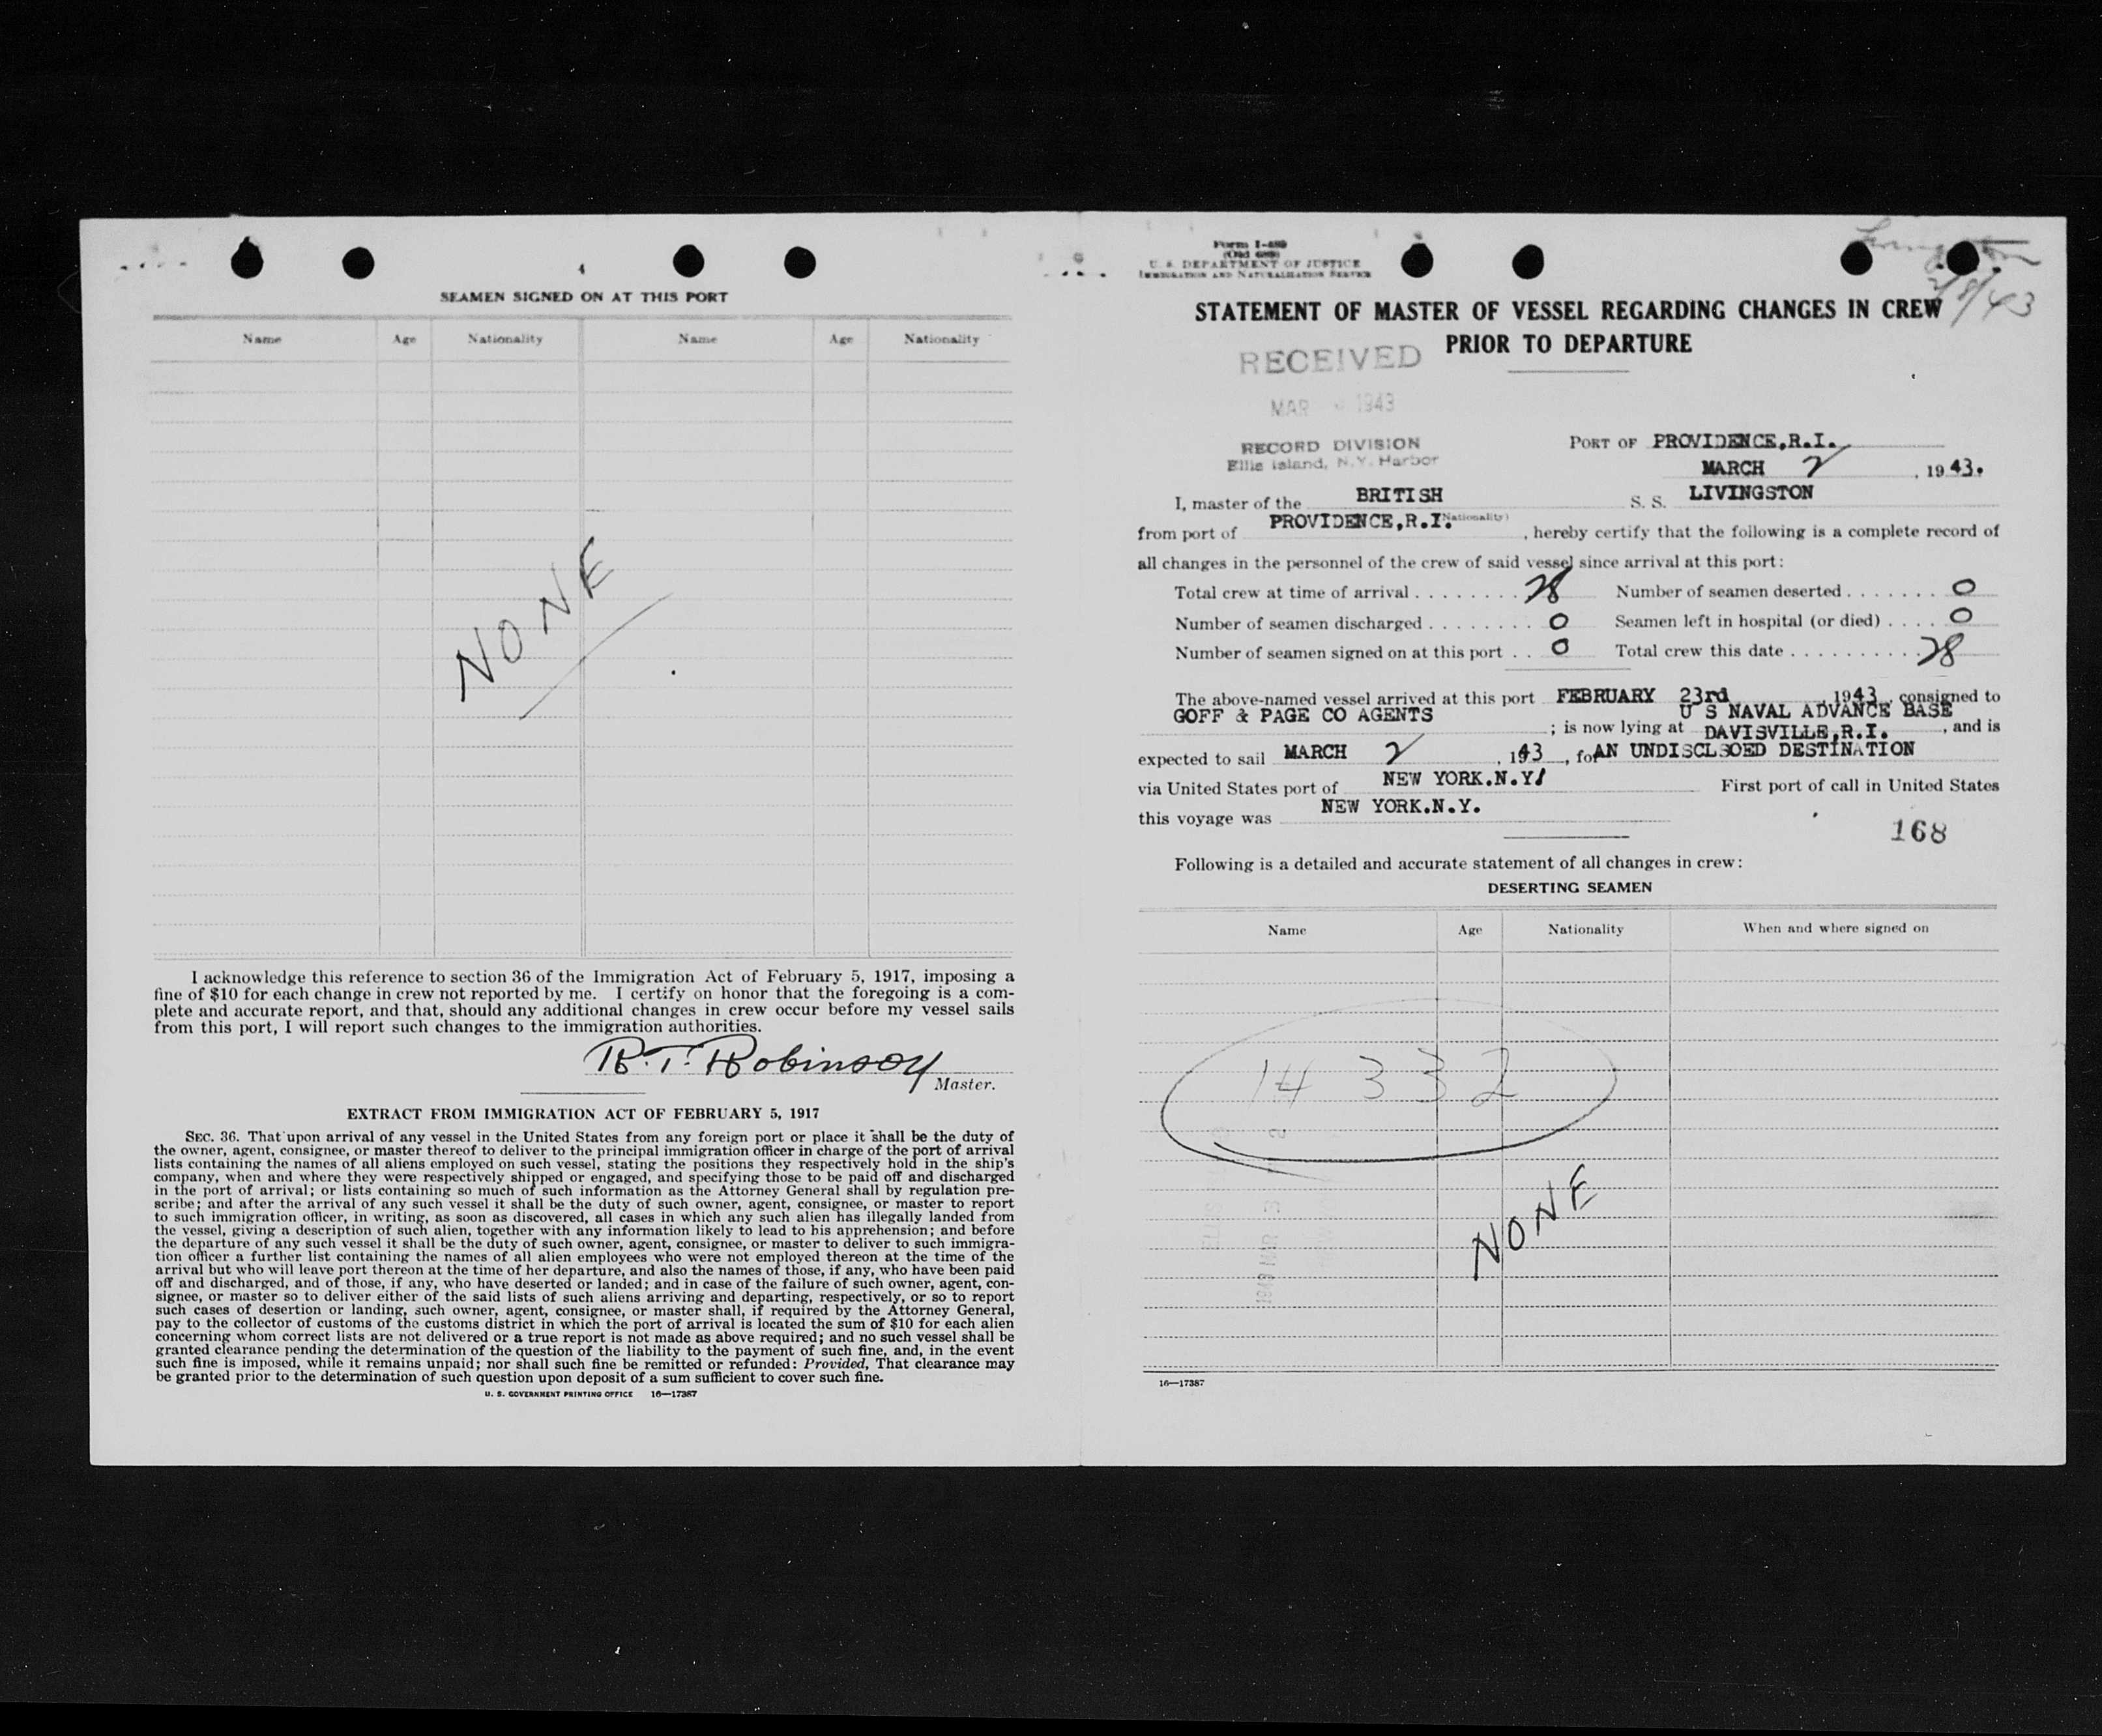 4
SEAMEN SIGNED ON AT THIS PORT
Name Age Nationality Name Age Nationality
NONE
I acknowledge this reference to section 36 of the Immigration Act of February 5, 1917, imposing a
fine of $10 for each change in crew not reported by me. I certify on honor that the foregoing is a com-
plete and accurate report, and that, should any additional changes in crew occur before my vessel sails
from this port, I will report such changes to the immigration authorities.
R. T. Robinson
Master.
EXTRACT FROM IMMIGRATION ACT OF FEBRUARY 5, 1917
SEC. 36. That upon arrival of any vessel in the United States from any foreign port or place it shall be the duty of
the owner, agent, consignee, or master thereof to deliver to the principal immigration officer in charge of the port of arrival
lists containing the names of all aliens employed on such vessel, stating the positions they respectively hold in the ship's
company, when and where they were respectively shipped or engaged, and specifying those to be paid off and discharged
in the port of arrival; or lists containing so much of such information as the Attorney General shall by regulation pre-
scribe; and after the arrival of any such vessel it shall be the duty of such owner, agent, consignee, or master to report
to such immigration officer, in writing, as soon as discovered, all cases in which any such alien has illegally landed from
the vessel, giving a description of such alien, together with any information likely to lead to his apprehension; and before
the departure of any such vessel it shall be the duty of such owner, agent, consignee, or master to deliver to such immigra-
tion officer a further list containing the names of all alien employees who were not employed thereon at the time of the
arrival but who will leave port thereon at the time of her departure, and also the names of those, if any, who have been paid
off and discharged, and of those, if any, who have deserted or landed; and in case of the failure of such owner, agent, con-
signee, or master so to deliver either of the said lists of such aliens arriving and departing, respectively, or so to report
such cases of desertion or landing, such owner, agent, consignee, or master shall, if required by the Attorney General,
pay to the collector of customs of the customs district in which the port of arrival is located the sum of $10 for each alien
concerning whom correct lists are not delivered or a true report is not made as above required; and no such vessel shall be
granted clearance pending the determination of the question of the liability to the payment of such fine, and, in the event
such fine is imposed, while it remains unpaid; nor shall such fine be remitted or refunded: Provided, That clearance may
be granted prior to the determination of such question upon deposit of a sum sufficient to cover such fine.
U. S. GOVERNMENT PRINTING OFFICE 16—17387
Form I-489
(Old 689)
U. S. DEPARTMENT OF JUSTICE
IMMIGRATION AND NATURALIZATION SERVICE
Livingston
/8/43
STATEMENT OF MASTER OF VESSEL REGARDING CHANGES IN CREW
PRIOR TO DEPARTURE
RECEIVED
MAR 1943
RECORD DIVISION
Ellis Island, N.Y. Harbor
PORT OF PROVIDENCE,R.I.
MARCH 2, 1943.
I, master of the BRITISH S. S. LIVINGSTON
(Nationality)
from port of PROVIDENCE,R.I., hereby certify that the following is a complete record of
all changes in the personnel of the crew of said vessel since arrival at this port:
Total crew at time of arrival 28 Number of seamen deserted 0
Number of seamen discharged 0 Seamen left in hospital (or died) 0
Number of seamen signed on at this port 0 Total crew this date 28
The above-named vessel arrived at this port FEBRUARY 23rd, 1943, consigned to
GOFF & PAGE CO AGENTS ; is now lying at U S NAVAL ADVANCE BASE DAVISVILLE,R.I., and is
expected to sail MARCH 2, 1943, for AN UNDISCLSOED DESTINATION
via United States port of NEW YORK.N.Y. First port of call in United States
this voyage was NEW YORK.N.Y.
168
Following is a detailed and accurate statement of all changes in crew:
DESERTING SEAMEN
Name Age Nationality When and where signed on
14 332
NONE
16—17387